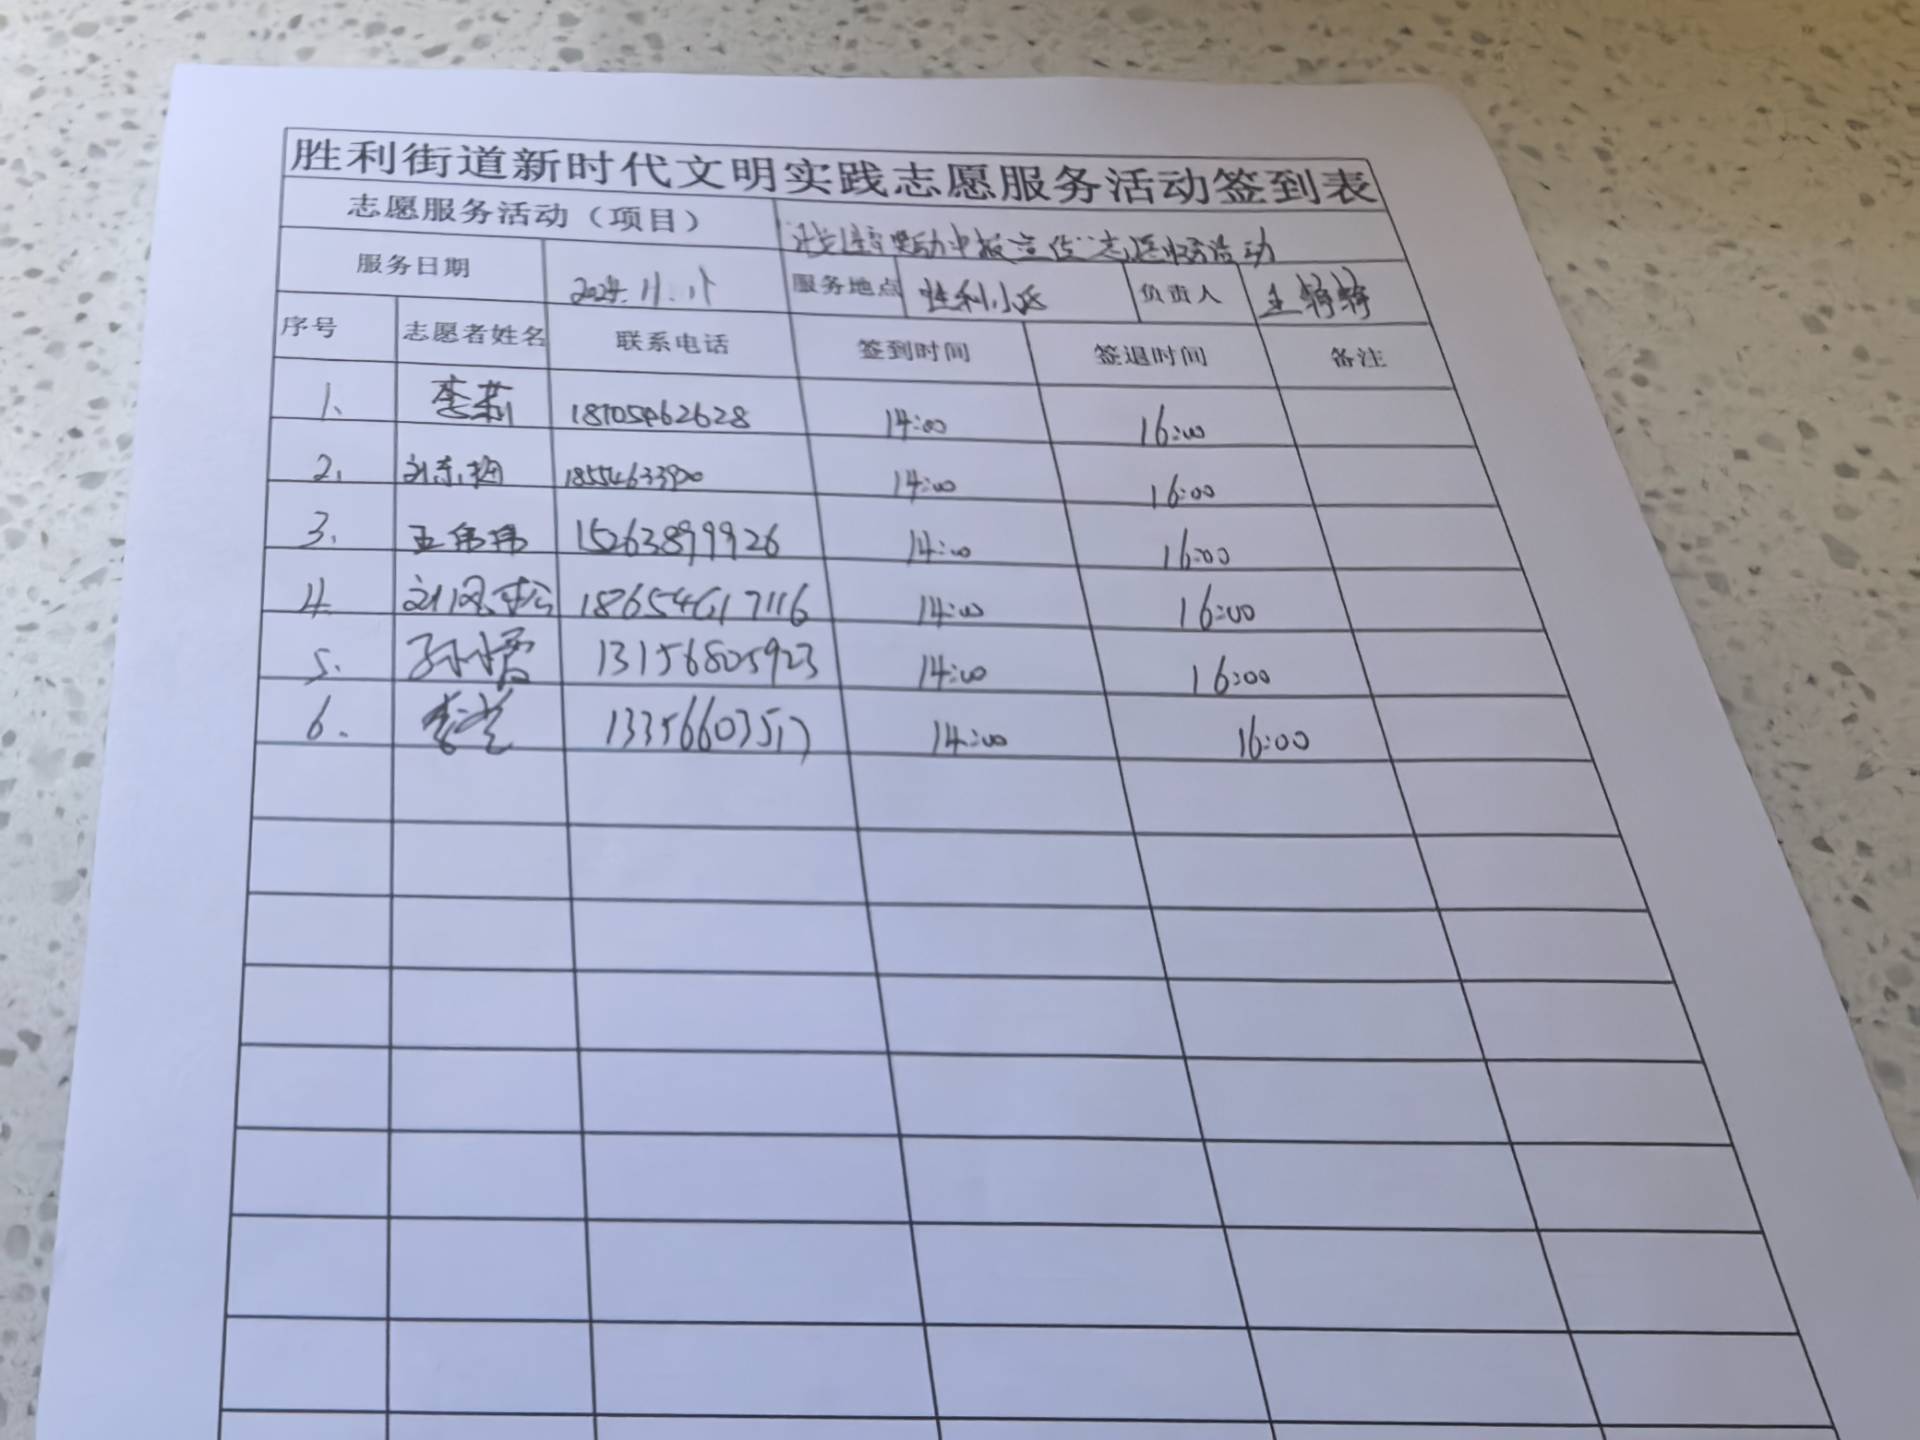 胜利街道新时代文明实践志愿服务活动签到表
志愿服务活动（项目） 申报宣传"志愿服务活动
服务日期 2024.11. 服务地点 胜利小区 负责人 王
序号 志愿者姓名 联系电话 签到时间 签退时间 备注
1、 李莉 18705462628 14:00 16:00
2、 18554633900 14:00 16:00
3. 王伟玮 15263899926 14:00 16:00
4. 18654617116 14:00 16:00
5. 孙小雪 13156805923 14:00 16:00
6. 13356603517 14:00 16:00